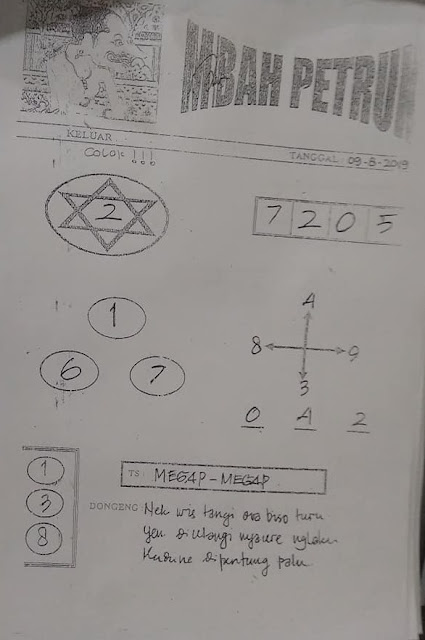 MBAH PETRUK
KELUAR
COLOK !!!
TANGGAL : 09-8-2019
2
7 2 0 5
1
6 7
4
8 9
3
0 4 2
1
3
8
TS : MEGAP-MEGAP
DONGENG Nek wis tangi ora biso turu
Yen di
Kudune dipentung palu